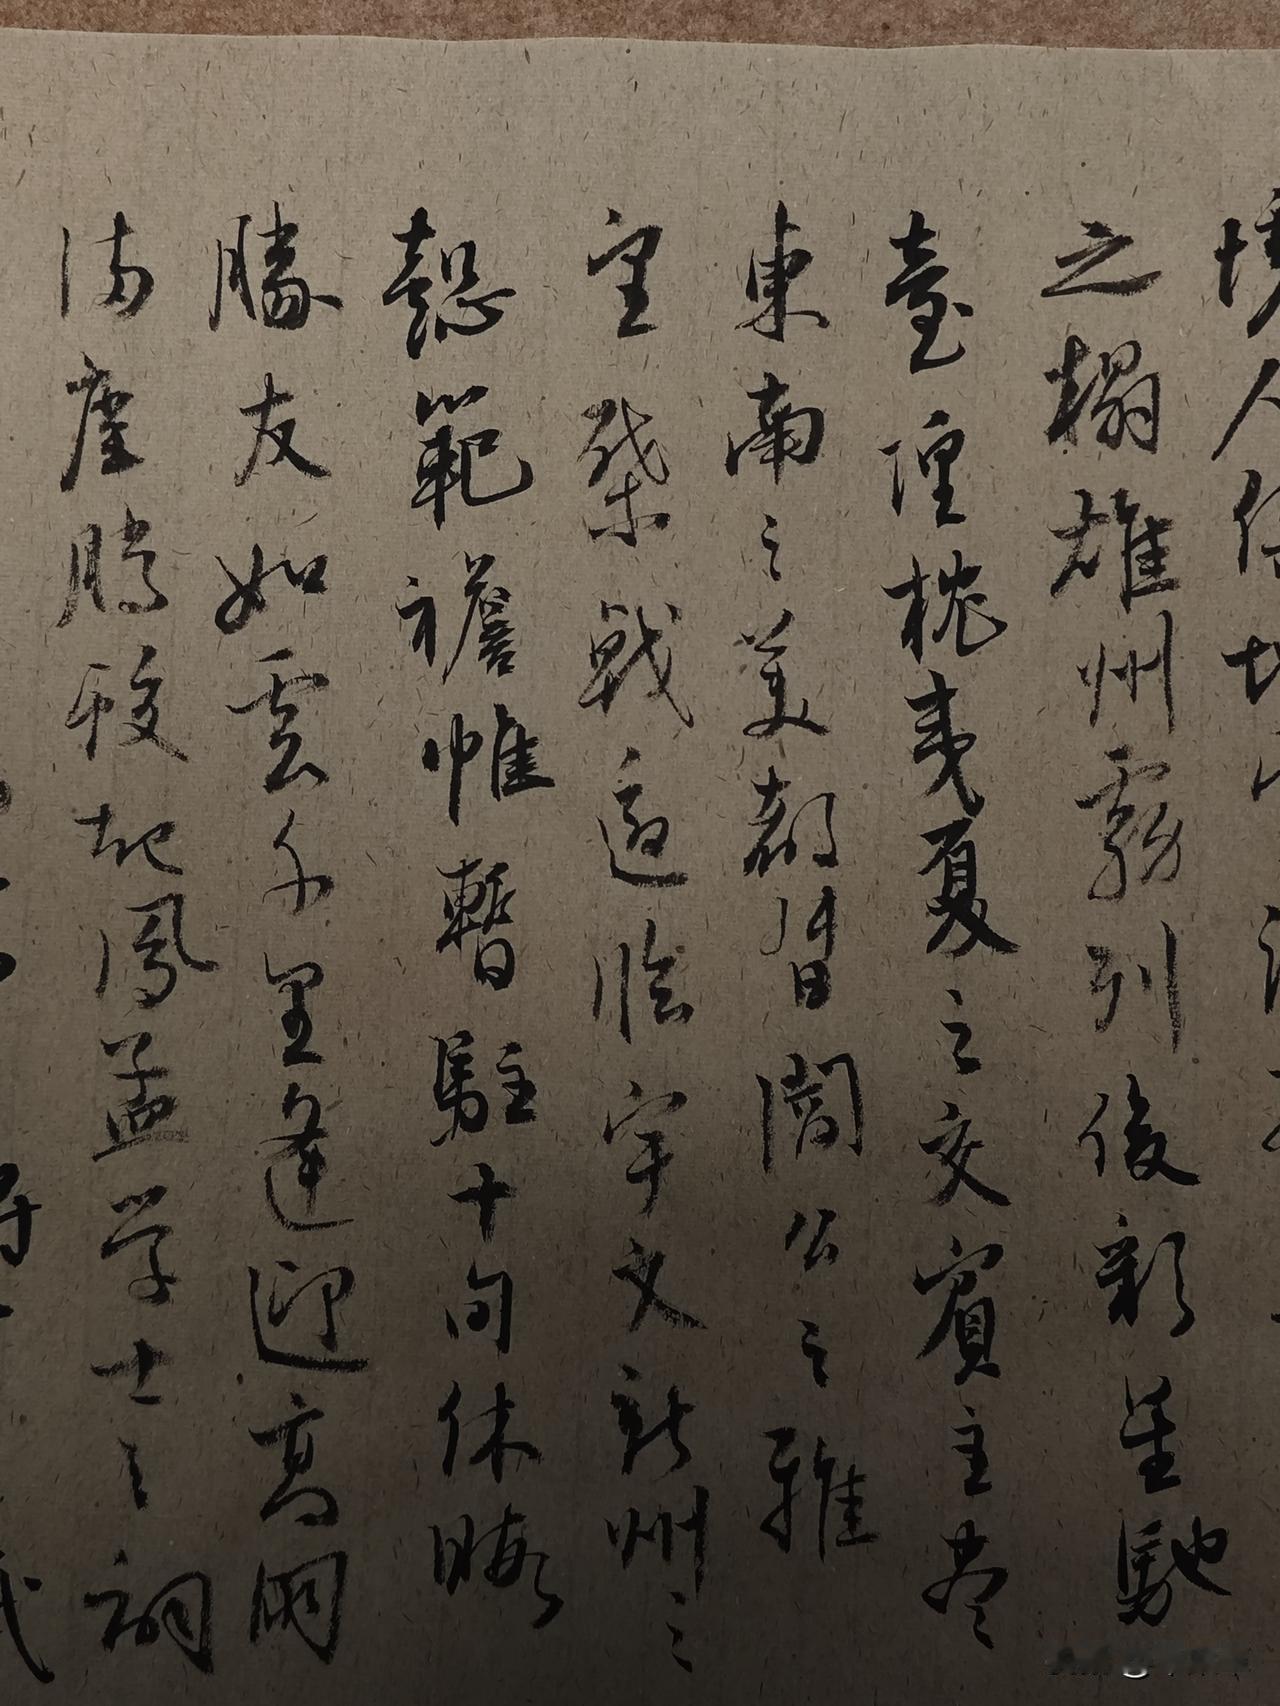 人
之榻雄州霧列俊彩星馳
臺隍枕夷夏之交賓主尽
東南之美都督閻公之雅
望棨戟遙臨宇文新州之
懿範襜帷暫駐十旬休暇
勝友如雲千里逢迎高朋
滿座騰蛟起鳳孟学士之詞